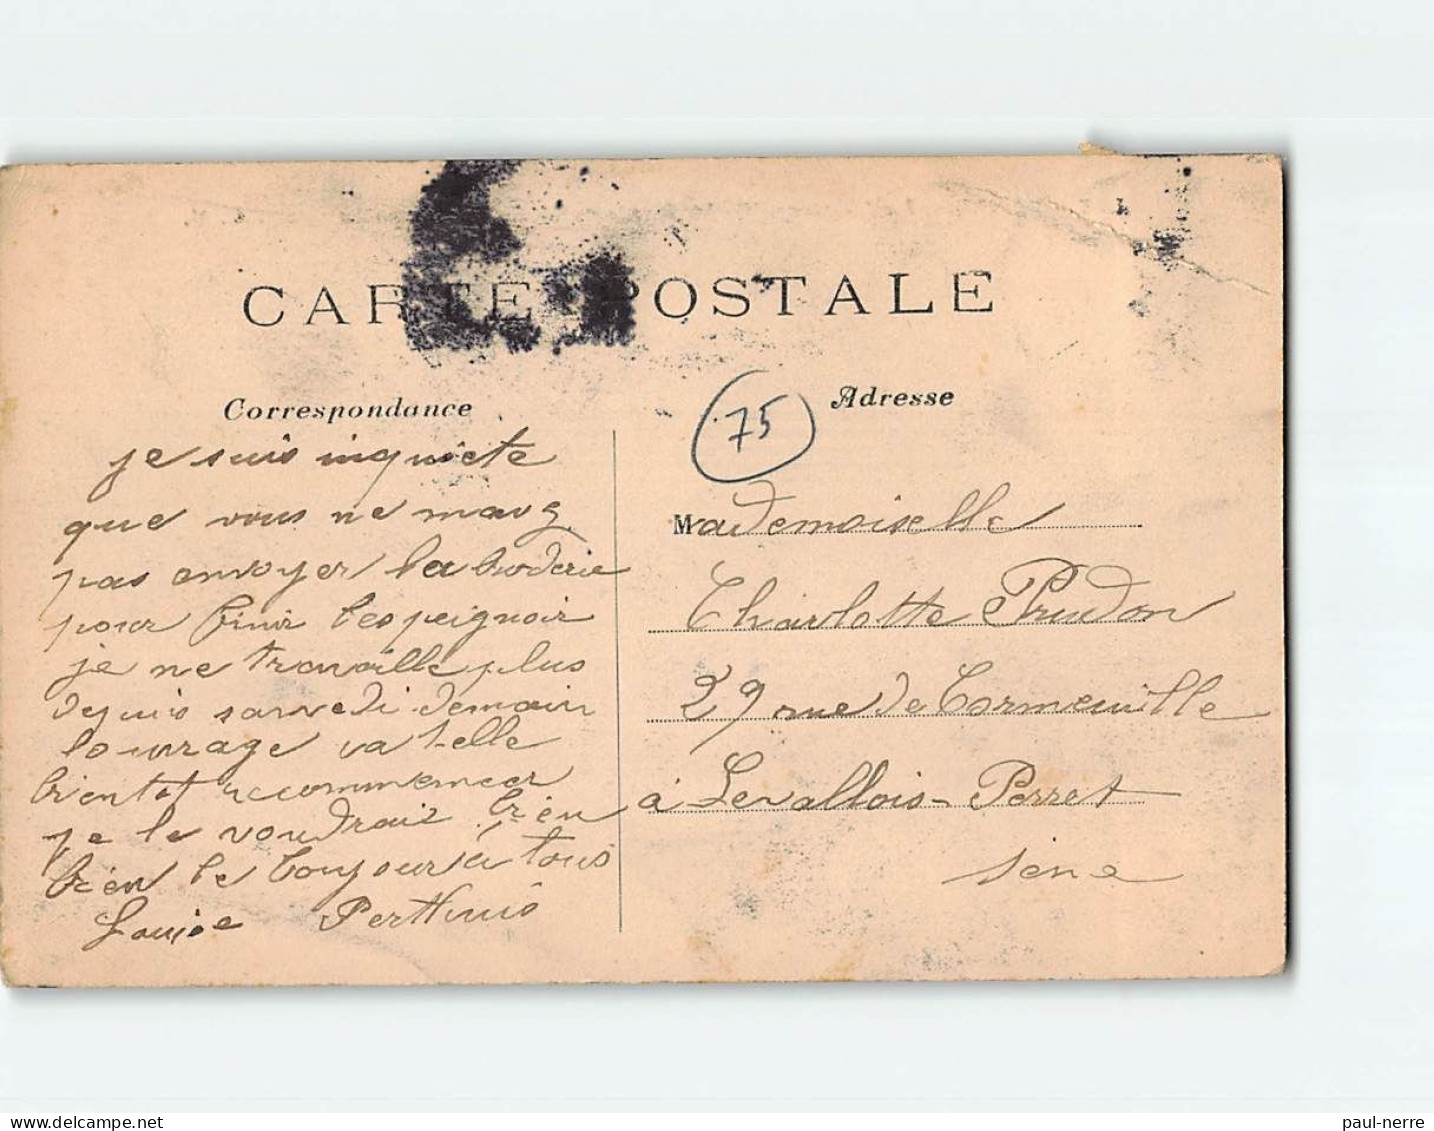 CARTE POSTALE
Correspondance
je suis inquiete
que vous ne mavez
pas envoyer la broderie
pour finir les peignoir
je ne travaille plus
depuis samedi demain
louvrage va t-elle
bientot recommencer
je le voudrais bien
bien le bonjour à tous
Louise Perthuis
75
Adresse
Mademoiselle
Charlotte Prudon
29 rue de Cormeuille
à Levallois-Perret
Seine
delcampe.net
paul-nerre